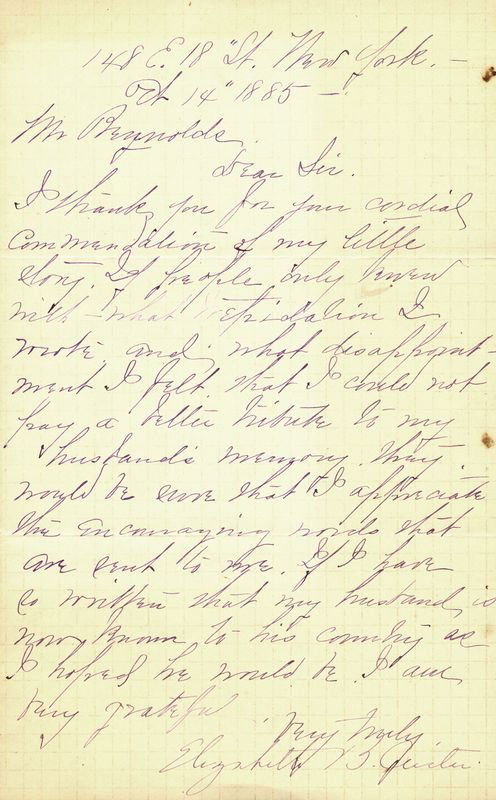 148 E. 18" St. New York. —
Oct 14" 1885 —
Mr Reynolds.
Dear Sir.
I thank you for your cordial
commendation of my little
story. If people only knew
with - what trepidation I
wrote and what disappoint-
ment I felt that I could not
pay a better tribute to my
husband's memory they
would be sure that I appreciate
the encouraging words that
are sent to me. If I have
so written that my husband is
now known to his country as
I hoped he would be I am
very grateful
Very truly
Elizabeth B. Custer.